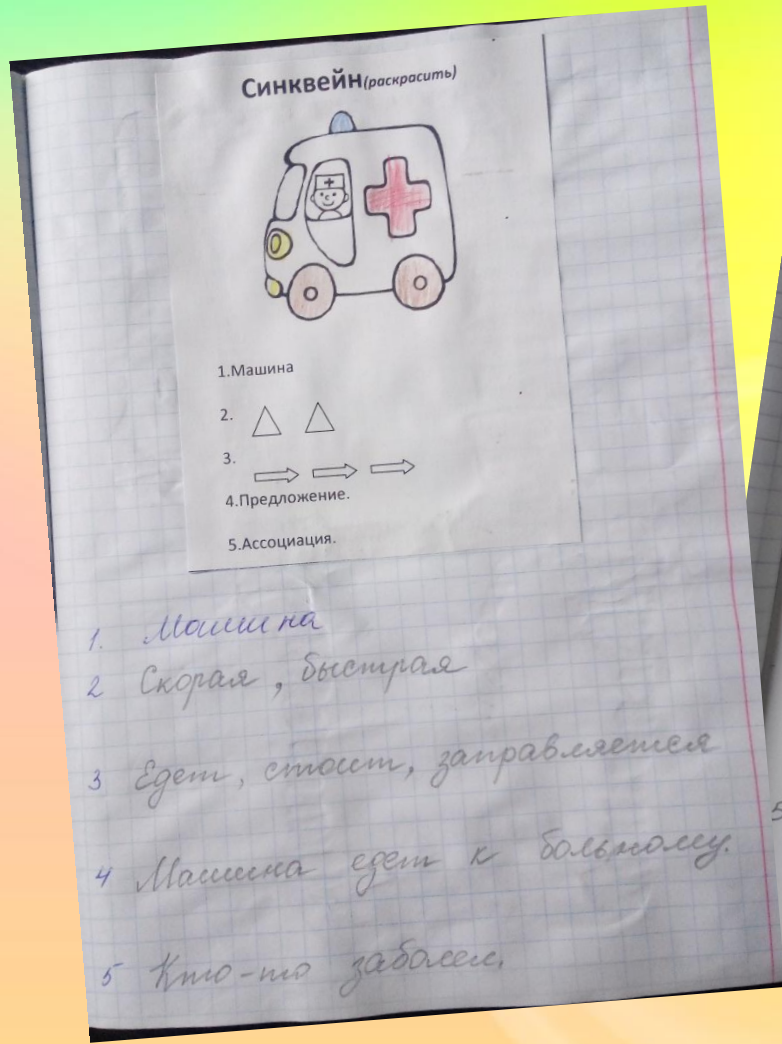 Синквейн(раскрасить)
1.Машина
2.
3.
4.Предложение.
5.Ассоциация.
1. Машина
2 Скорая, быстрая
3 Едет, стоит, заправляется
4 Машина едет к больному.
5 Кто-то заболел.
5